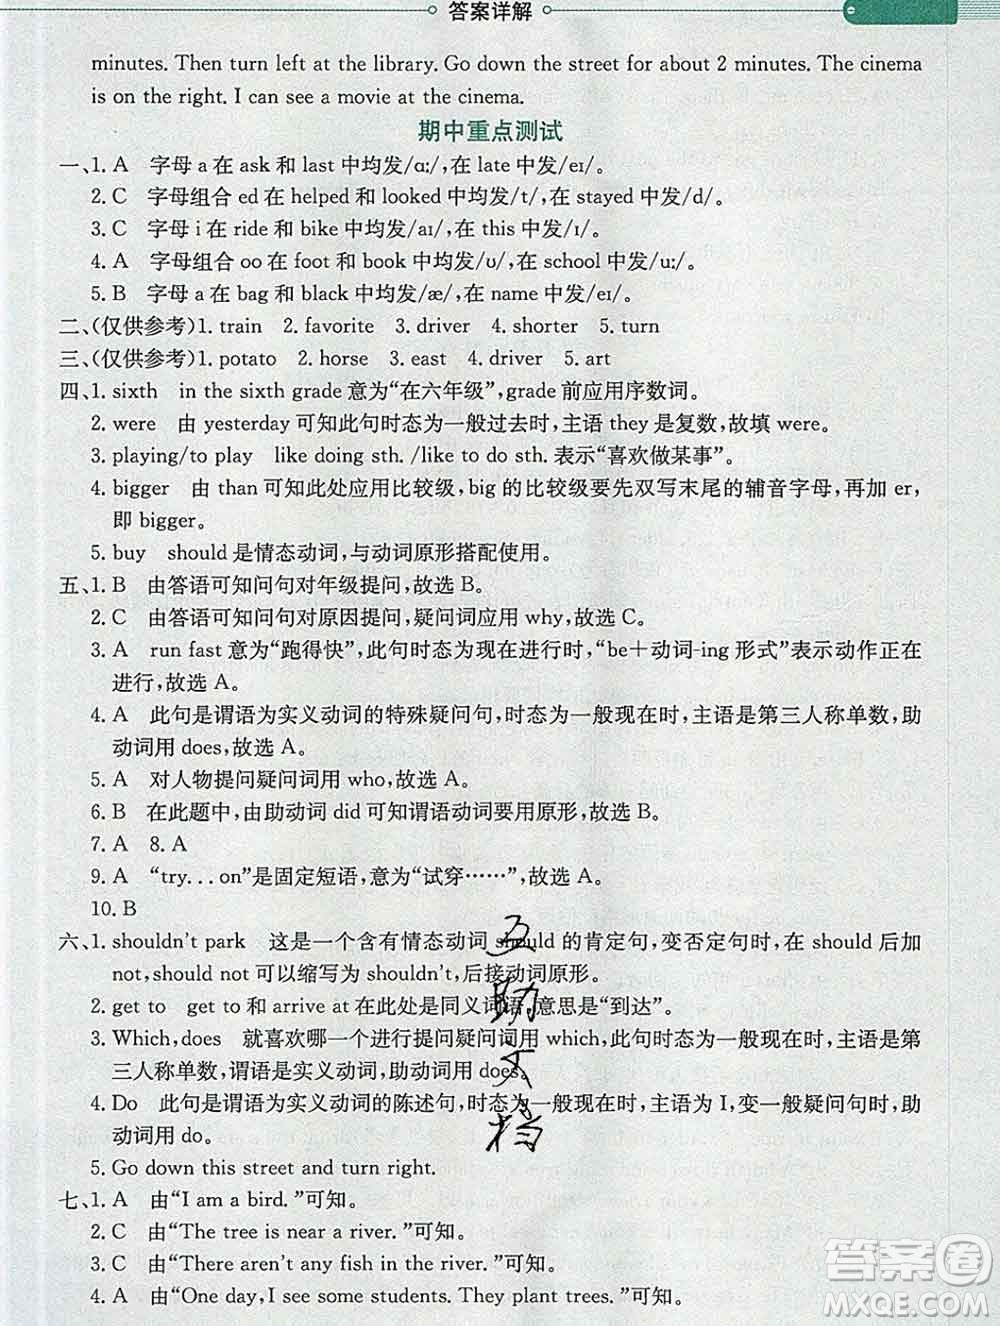 答案详解
minutes. Then turn left at the library. Go down the street for about 2 minutes. The cinema
is on the right. I can see a movie at the cinema.
期中重点测试
一、1. A 字母 a 在 ask 和 last 中均发/ɑː/,在 late 中发/eɪ/。
2. C 字母组合 ed 在 helped 和 looked 中均发/t/,在 stayed 中发/d/。
3. C 字母 i 在 ride 和 bike 中均发/aɪ/,在 this 中发/ɪ/。
4. A 字母组合 oo 在 foot 和 book 中均发/ʊ/,在 school 中发/uː/。
5. B 字母 a 在 bag 和 black 中均发/æ/,在 name 中发/eɪ/。
二、(仅供参考)1. train 2. favorite 3. driver 4. shorter 5. turn
三、(仅供参考)1. potato 2. horse 3. east 4. driver 5. art
四、1. sixth in the sixth grade 意为“在六年级”,grade 前应用序数词。
2. were 由 yesterday 可知此句时态为一般过去时,主语 they 是复数,故填 were。
3. playing/to play like doing sth. /like to do sth. 表示“喜欢做某事”。
4. bigger 由 than 可知此处应用比较级,big 的比较级要先双写末尾的辅音字母,再加 er,
即 bigger。
5. buy should 是情态动词,与动词原形搭配使用。
五、1. B 由答语可知问句对年级提问,故选 B。
2. C 由答语可知问句对原因提问,疑问词应用 why,故选 C。
3. A run fast 意为“跑得快”,此句时态为现在进行时,“be+动词-ing 形式”表示动作正在
进行,故选 A。
4. A 此句是谓语为实义动词的特殊疑问句,时态为一般现在时,主语是第三人称单数,助
动词用 does,故选 A。
5. A 对人物提问疑问词用 who,故选 A。
6. B 在此题中,由助动词 did 可知谓语动词要用原形,故选 B。
7. A 8. A
9. A “try. . . on”是固定短语,意为“试穿……”,故选 A。
10. B
六、1. shouldn't park 这是一个含有情态动词 should 的肯定句,变否定句时,在 should 后加
not,should not 可以缩写为 shouldn't,后接动词原形。
2. get to get to 和 arrive at 在此处是同义词语,意思是“到达”。
3. Which,does 就喜欢哪一个进行提问疑问词用 which,此句时态为一般现在时,主语是第
三人称单数,谓语是实义动词,助动词用 does。
4. Do 此句是谓语为实义动词的陈述句,时态为一般现在时,主语为 I,变一般疑问句时,助
动词用 do。
5. Go down this street and turn right.
七、1. A 由“I am a bird. ”可知。
2. C 由“The tree is near a river. ”可知。
3. C 由“There aren't any fish in the river. ”可知。
4. A 由“One day, I see some students. They plant trees. ”可知。
互
助
文
档
答案圈
MXQE.COM